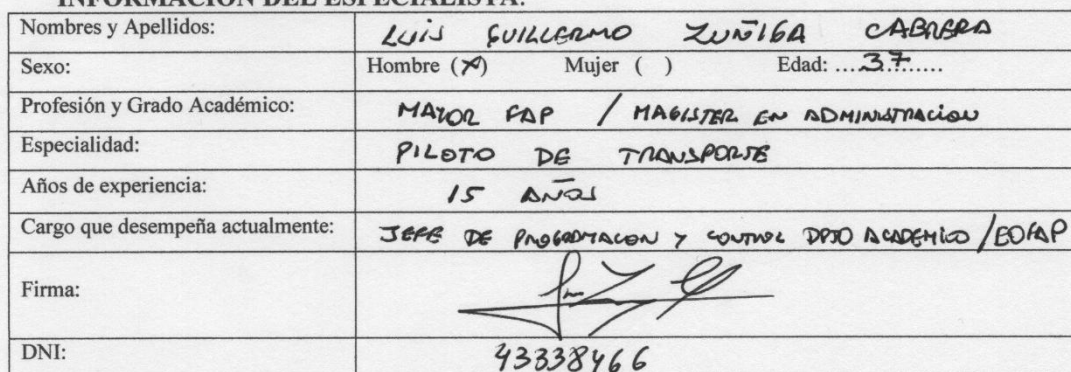 INFORMACIÓN DEL ESPECIALISTA:
Nombres y Apellidos: LUIS GUILLERMO ZUÑIGA CABRERA
Sexo: Hombre (X) Mujer ( ) Edad: ....37.......
Profesión y Grado Académico: MAYOR FAP / MAGISTER EN ADMINISTRACION
Especialidad: PILOTO DE TRANSPORTE
Años de experiencia: 15 AÑOS
Cargo que desempeña actualmente: JEFE DE PROGRAMACION Y CONTROL DPTO ACADEMICO / EOFAP
Firma:
DNI: 43338466